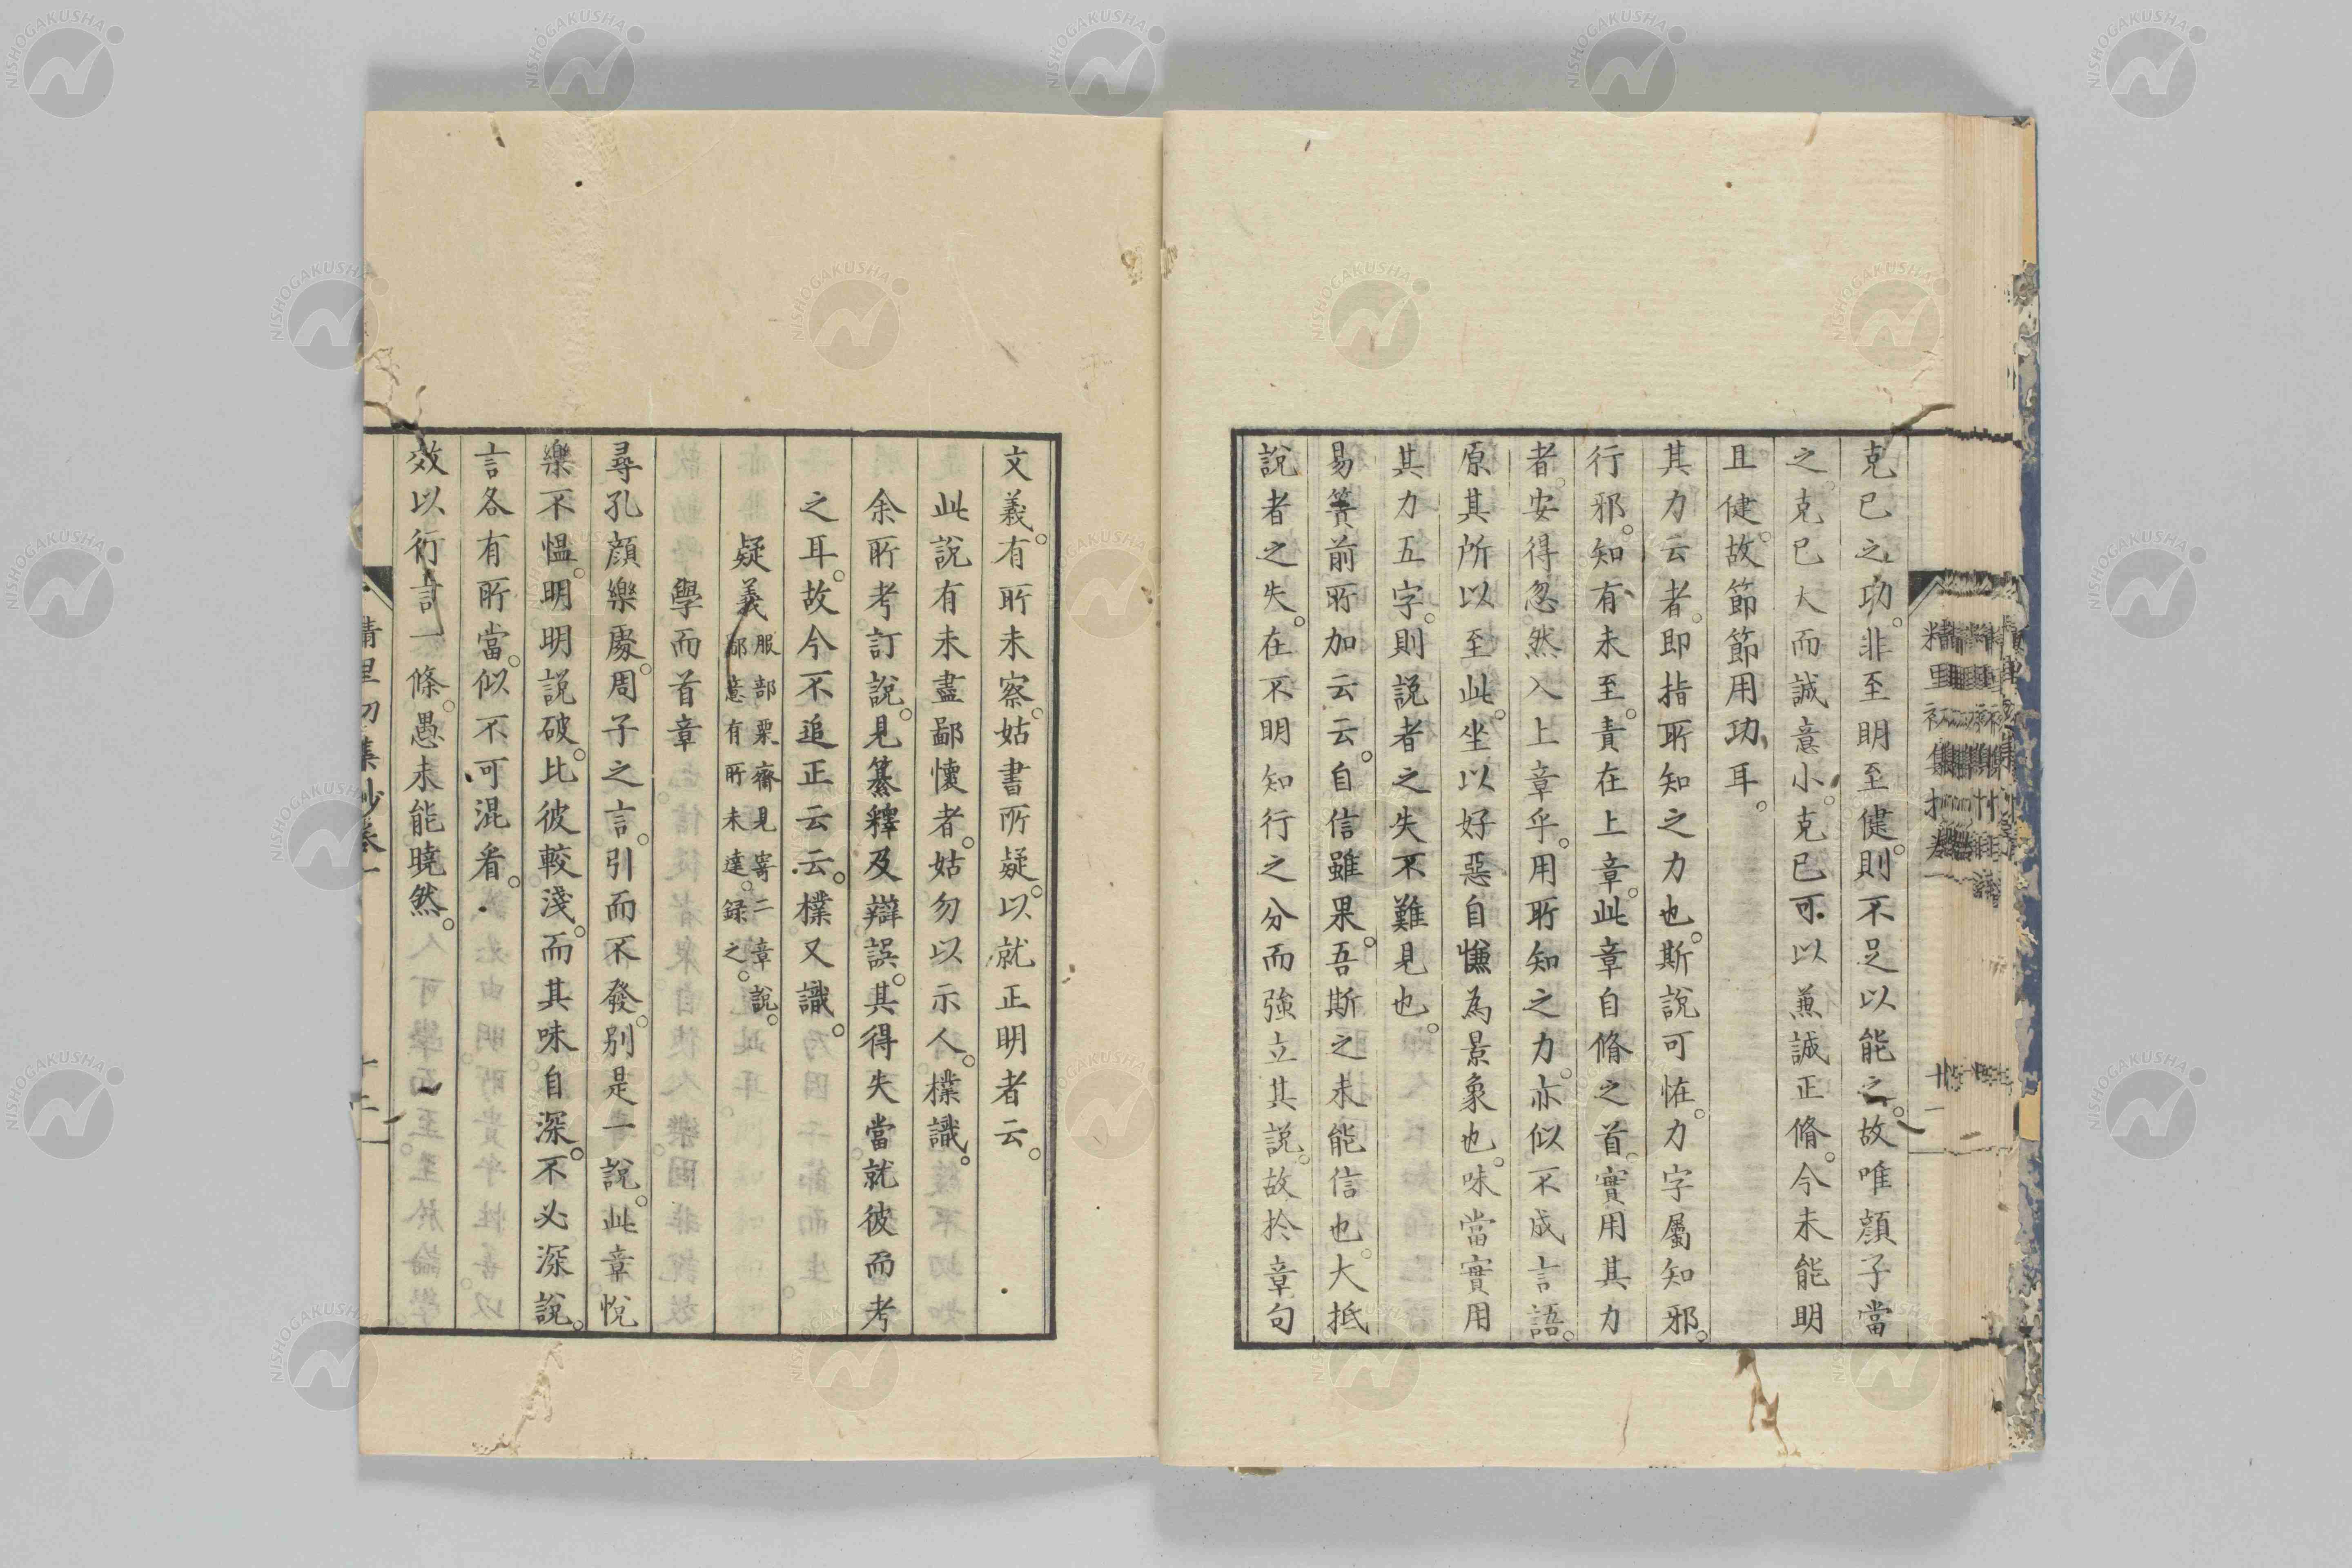 克已之功。非至明至健。則不足以能之。故唯顔子當
之。克已大而誠意小。克已可以兼誠正脩。今未能明
且健。故節節用功耳。
其力云者。即指所知之力也。斯說可恠。力字屬知邪。
行邪。知有未至。責在上章。此章自脩之首。實用其力
者。安得忽然入上章乎。用所知之力。亦似不成言語。
原其所以至此。坐以好惡自慊為景象也。味當實用
其力五字。則説者之失不難見也。
易簀前所加云云。自信雖果。吾斯之未能信也。大抵
說者之失。在不明知行之分而強立其説。故於章句
文義。有所未察。姑書所疑。以就正明者云。
此說有未盡鄙懷者。姑勿以示人。樸識。
余所考訂說。見纂釋及辯誤。其得失當就彼而考
之耳。故今不追正云云。樸又識。
疑義服部栗齋見寄二章說。鄙意有所未達。録之。
學而首章
尋孔顔樂處。周子之言。引而不發。別是一說。此章悅
樂不慍。明明說破。比彼較淺。而其味自深。不必深說。
言各有所當。似不可混看。
效以行言一條。愚未能曉然。
精里初集抄卷一
十二